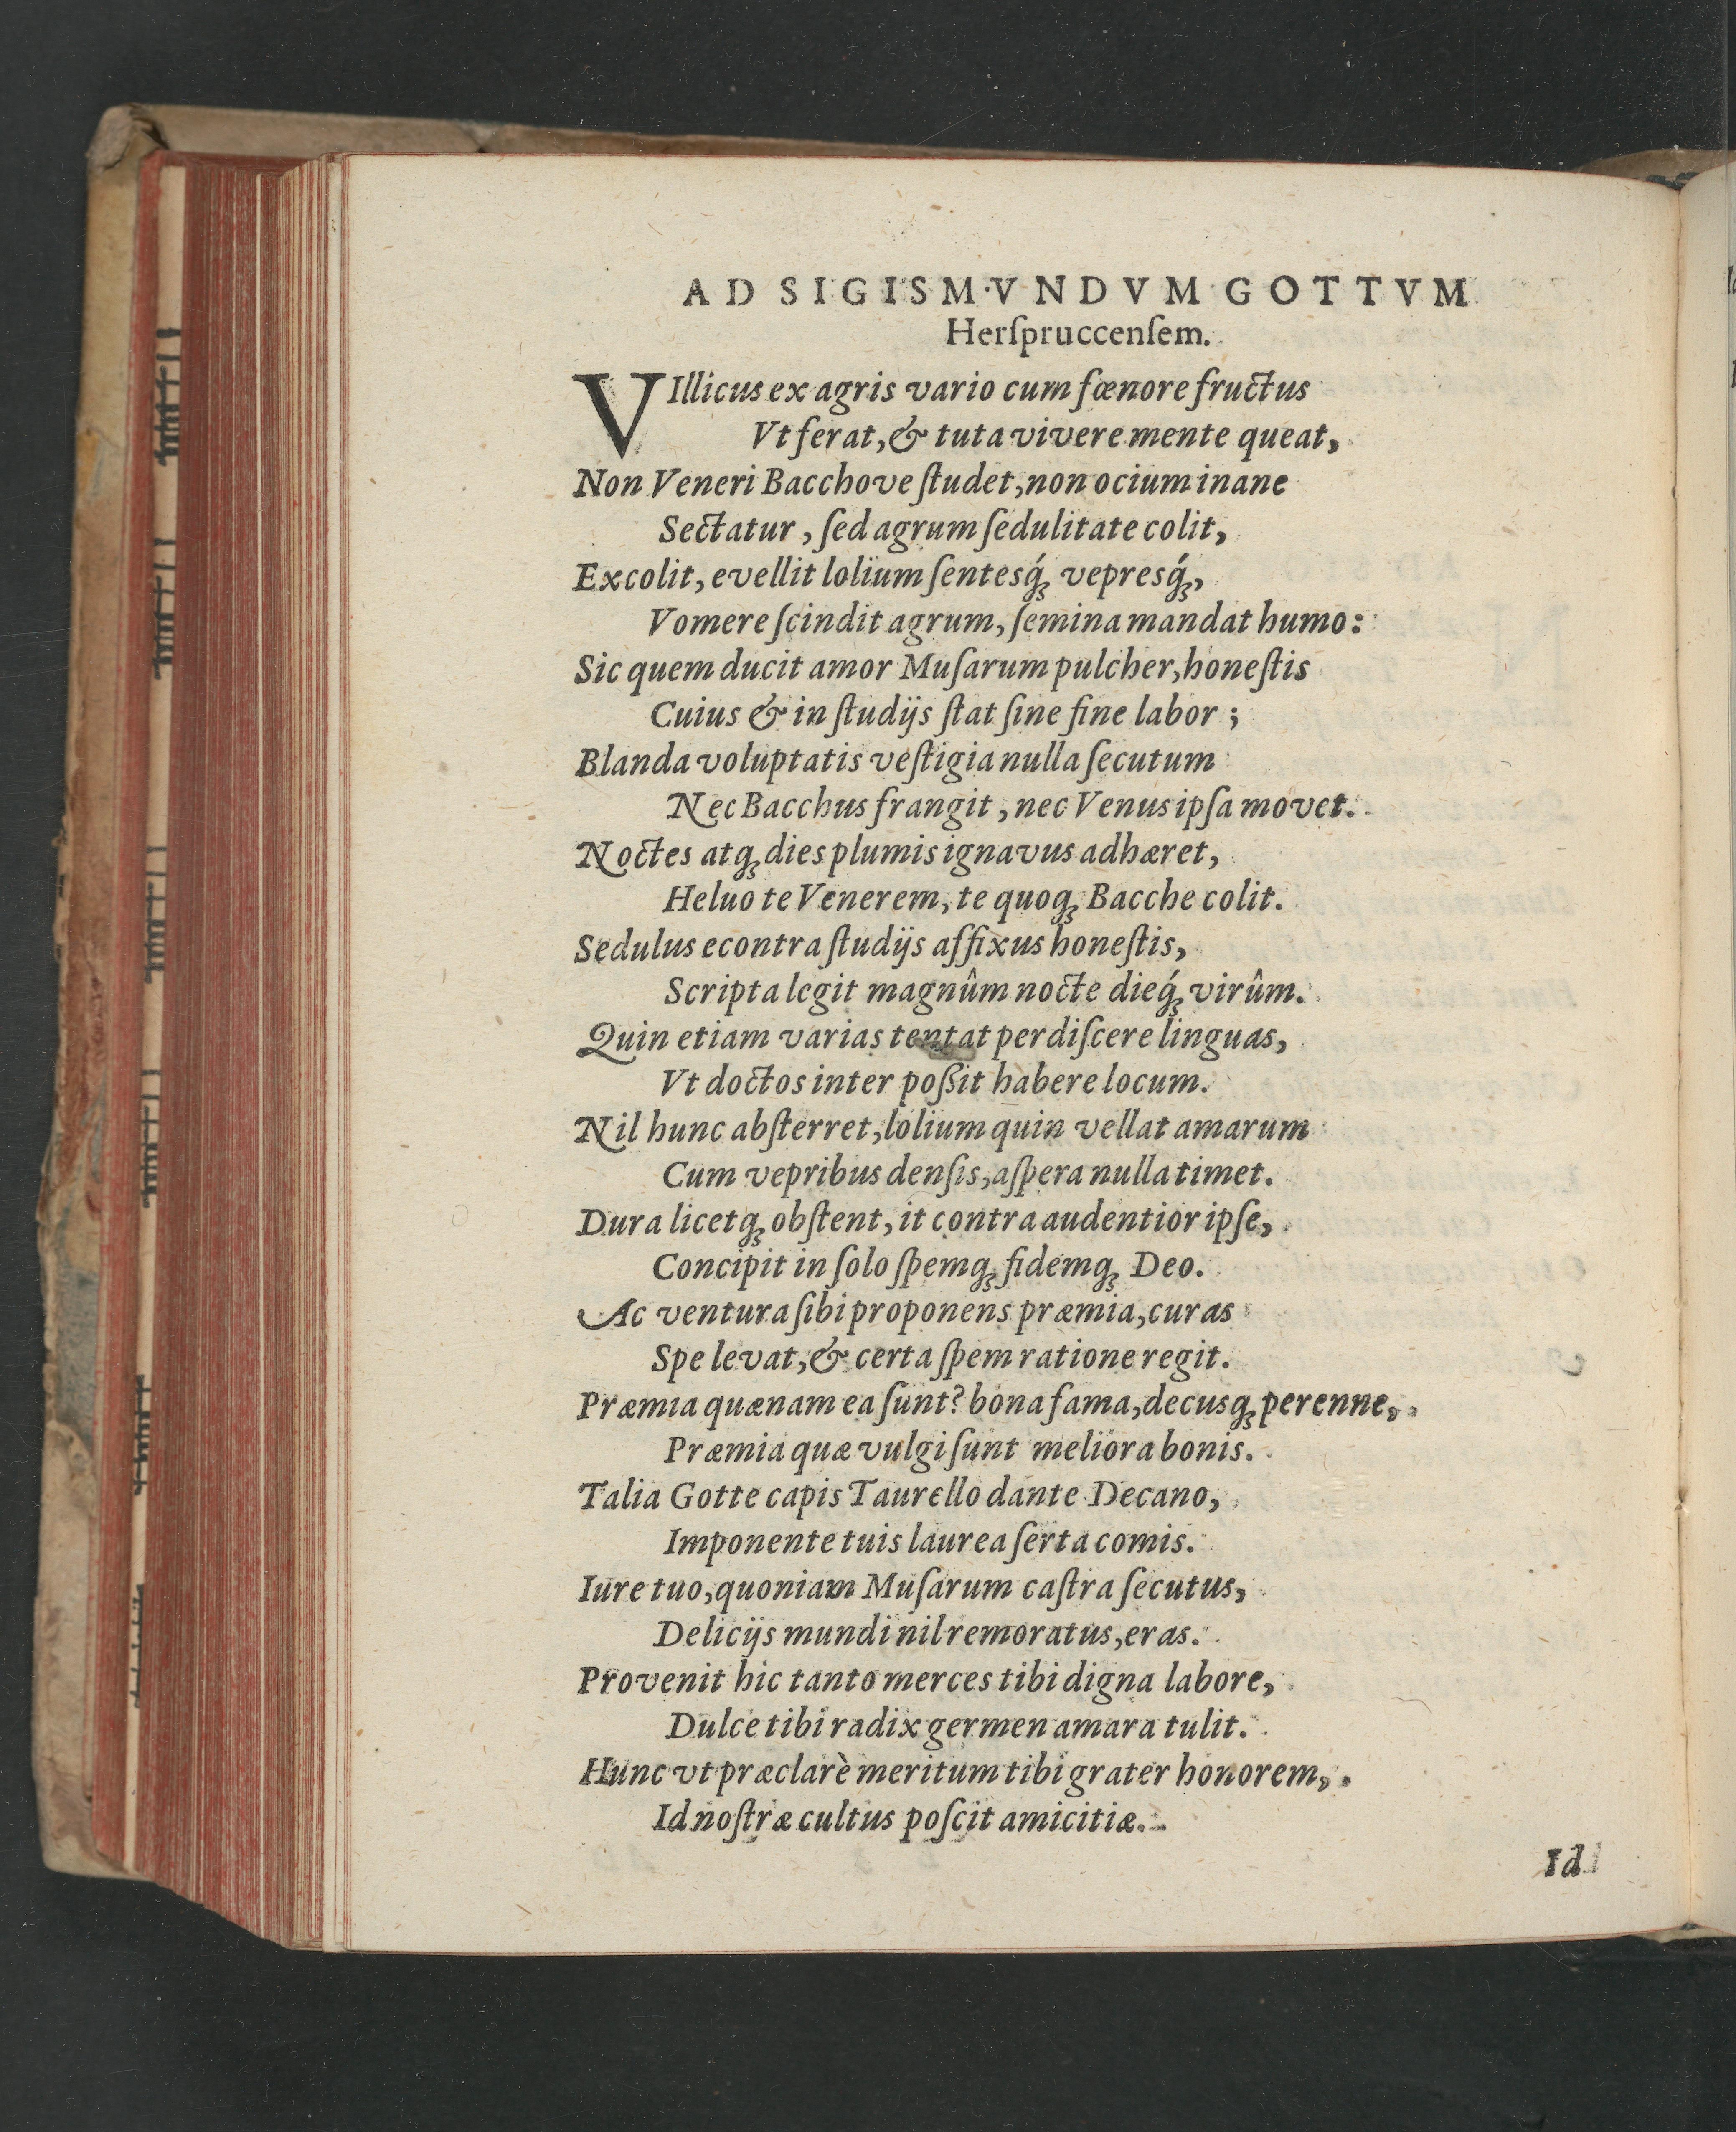 AD SIGISMVNDVM GOTTVM
Herſpruccenſem.
VIllicus ex agris vario cum fœnore fructus
Vt ferat, & tuta vivere mente queat,
Non Veneri Bacchove ſtudet, non ocium inane
Sectatur, ſed agrum ſedulitate colit,
Excolit, evellit lolium ſentesq́ꝫ vepresq́ꝫ,
Vomere ſcindit agrum, ſemina mandat humo:
Sic quem ducit amor Muſarum pulcher, honeſtis
Cuius & in ſtudijs ſtat ſine fine labor;
Blanda voluptatis veſtigia nulla ſecutum
Nec Bacchus frangit, nec Venus ipſa movet.
Noctes atqꝫ dies plumis ignavus adhæret,
Heluo te Venerem, te quoqꝫ Bacche colit.
Sedulus econtra ſtudijs affixus honeſtis,
Scripta legit magnûm nocte dieq́ꝫ virûm.
Quin etiam varias tentat perdiſcere linguas,
Vt doctos inter poßit habere locum.
Nil hunc abſterret, lolium quin vellat amarum
Cum vepribus denſis, aſpera nulla timet.
Dura licetqꝫ obſtent, it contra audentior ipſe,
Concipit in ſolo ſpemqꝫ fidemqꝫ Deo.
Ac ventura ſibi proponens præmia, curas
Spe levat, & certa ſpem ratione regit.
Præmia quænam ea ſunt? bona fama, decusqꝫ perenne,
Præmia quæ vulgi ſunt meliora bonis.
Talia Gotte capis Taurello dante Decano,
Imponente tuis laurea ſerta comis.
Iure tuo, quoniam Muſarum caſtra ſecutus,
Delicijs mundi nil remoratus, eras.
Provenit hic tanto merces tibi digna labore,
Dulce tibi radix germen amara tulit.
Hunc vt præclarè meritum tibi grater honorem,
Id noſtræ cultus poſcit amicitiæ.
Id